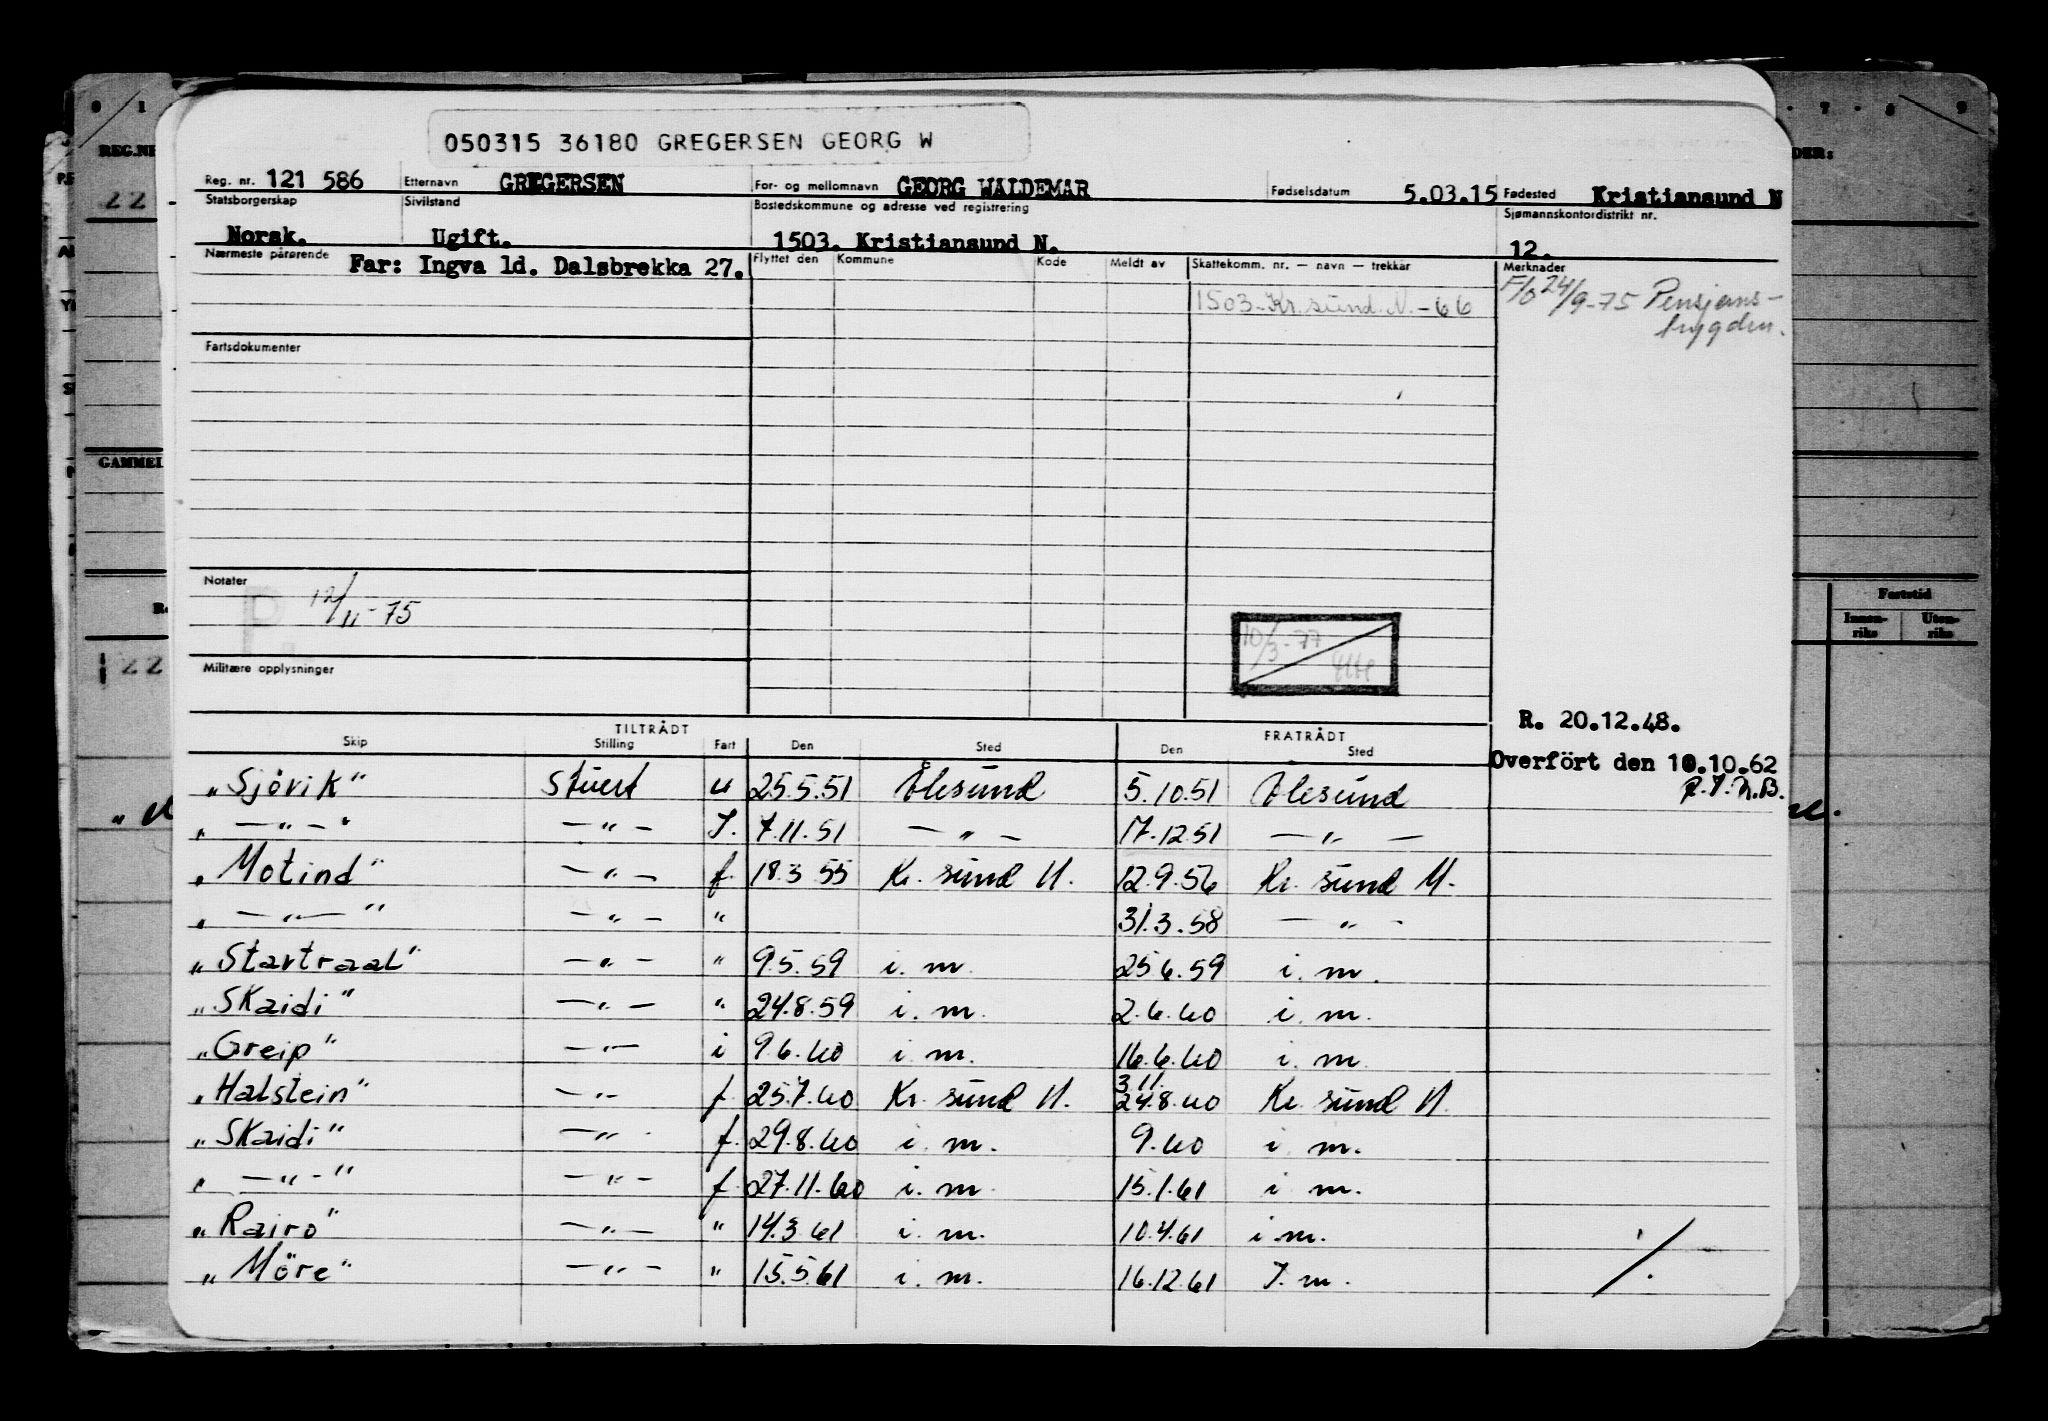 050315 36180 GREGERSEN GEORG W
Reg. nr. 121 586 Etternavn GREGERSEN For- og mellomnavn GEORG WALDEMAR Fødselsdatum 5.03.15 Fødested Kristiansund N
Statsborgerskap Sivilstand Bostedskommune og adresse ved registrering Sjømannskontordistrikt nr.
Norsk. Ugift. 1503. Kristiansund N. 12.
Nærmeste pårørende Far: Ingva ld. Dalsbrekka 27. Flyttet den Kommune Kode Meldt av Skattekomm. nr. — navn — trekkår Merknader
1503-Kr.sund.N.-66 F/b 24/9-75 Pensjons-
trygden.
Fartsdokumenter
Notater
P. 12/11-75
10/3-77
Militære opplysninger
R. 20.12.48.
TILTRÅDT FRATRÅDT
Skip Stilling Fart Den Sted Den Sted
Overført den 10.10.62
"Sjövik" Stuert u 25.5.51 Ålesund 5.10.51 Ålesund
" — " — " — " — J. 7.11.51 — " — 17.12.51 — " —
"Motind" — " — f. 18.3.55 Kr. sund N. 12.9.56 Kr. sund N.
" — " — " — " — " 31.3.58 — " —
"Startraal" — " — " 9.5.59 i. m. 25.6.59 i. m.
"Skaidi" — " — " 24.8.59 i. m. 2.6.60 i. m.
"Greip" — " — i 9.6.60 i. m. 16.6.60 i. m.
3.11.
"Halstein" — " — f. 25.7.60 Kr. sund N. 24.8.60 Kr. sund N.
"Skaidi" — " — f. 29.8.60 i. m. 9.60 i. m.
" — " — " — " — f. 27.11.60 i. m. 15.1.61 i m.
"Rairo" — " — " 14.3.61 i. m. 10.4.61 i.m.
"Möre" — " — " 15.5.61 i. m. 16.12.61 J. m.
./.
0 1 7 8 9
REG.NR
DER:
22
GAMMEL
Fartstid
Innen-
riks
Uten-
riks
22